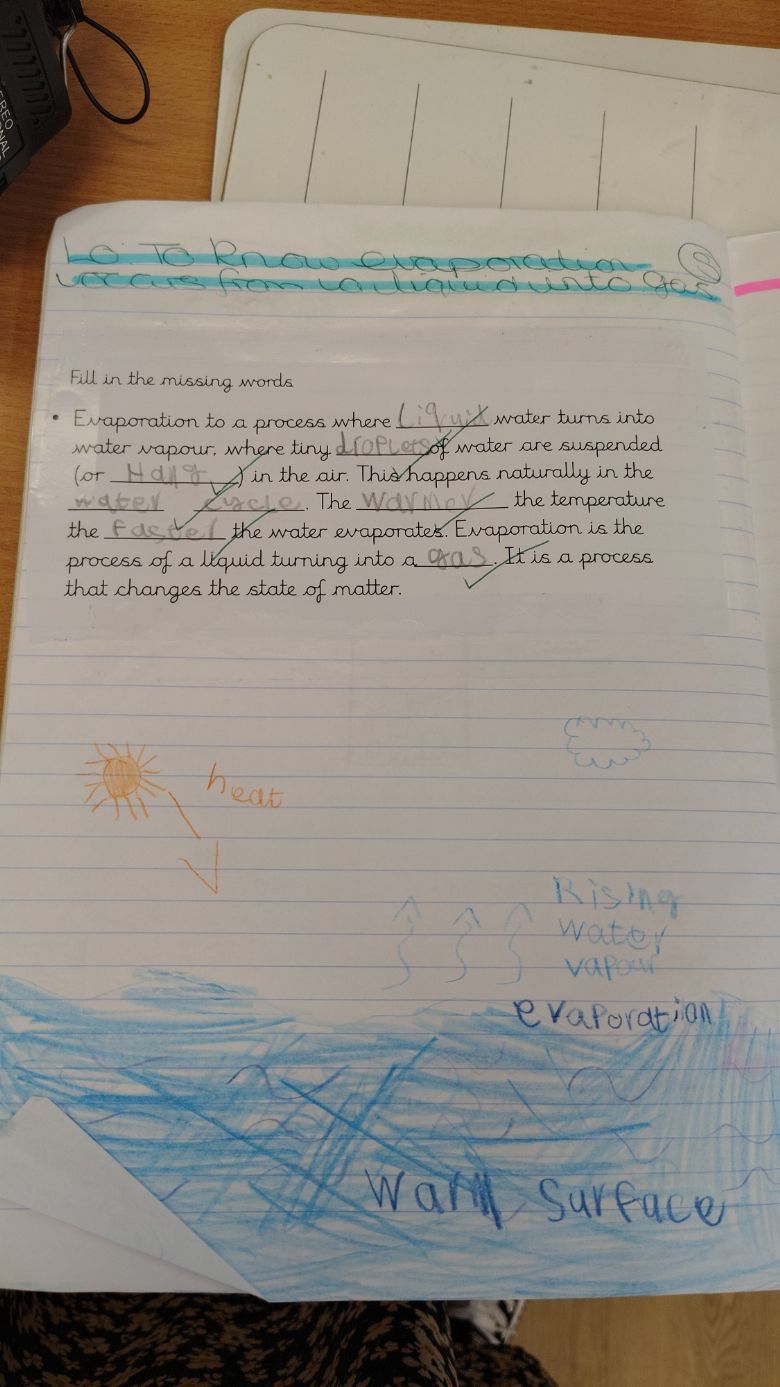 LO: To Know evaporation
occurs from a liquid into gas
S
Fill in the missing words
• Evaporation to a process where liquid water turns into
water vapour, where tiny droplets of water are suspended
(or Hang) in the air. This happens naturally in the
water cycle. The Warmer the temperature
the faster the water evaporates. Evaporation is the
process of a liquid turning into a gas. It is a process
that changes the state of matter.
heat
Rising
water
vapour
evaporation
Warm Surface